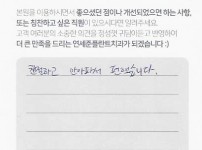 본원을 이용하시면서 좋으셨던 점이나 개선되었으면 하는 사항,
또는 칭찬하고 싶은 직원이 있으시다면 알려주세요.
고객 여러분의 소중한 의견을 정성껏 귀담아듣고 반영하여
더 큰 만족을 드리는 연세준플란트치과가 되겠습니다 :)
친절하고 안아파서 편했습니다.